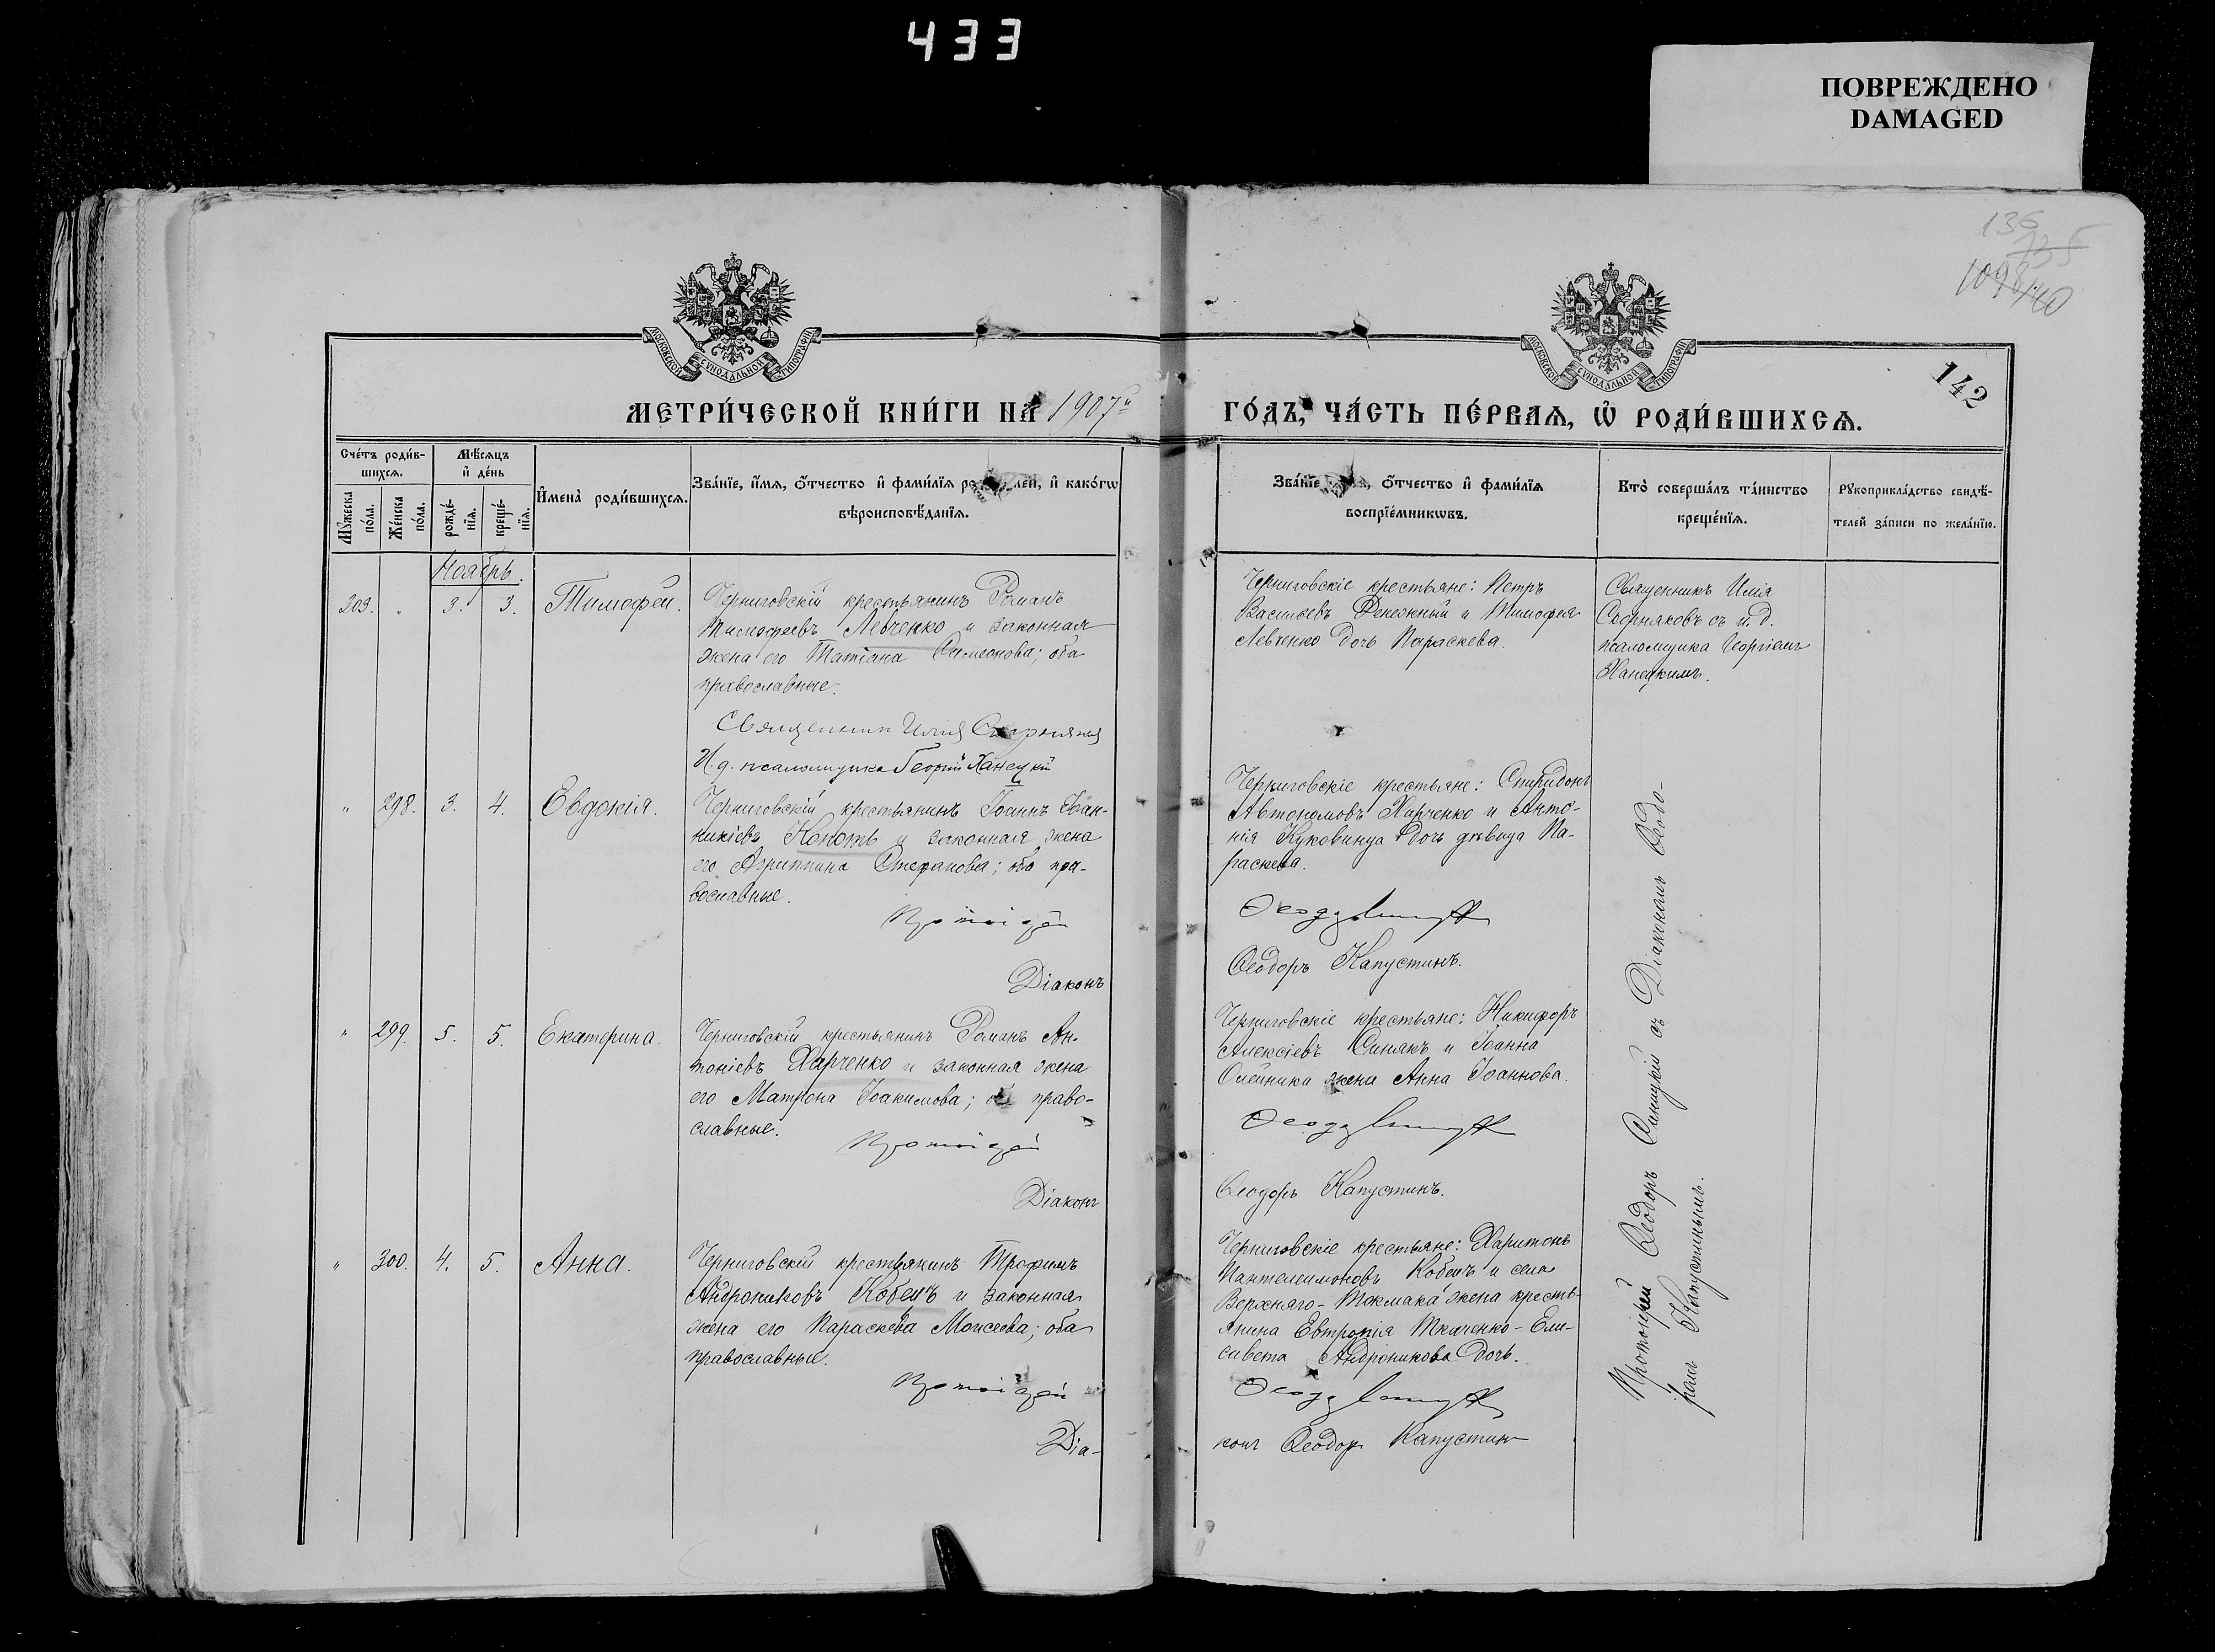 433
ПОВРЕЖДЕНО
DAMAGED
136
735
1098
140
142
МОСКОВСКОЙ СѴНОДАЛЬНОЙ ТИПОГРАФІИ
МОСКОВСКОЙ СѴНОДАЛЬНОЙ ТИПОГРАФІИ
МЕТРИ́ЧЕСКОЙ КНИ́ГИ НА 1907й
ГО́ДЪ, ЧА́СТЬ ПЕ́РВАѦ, Ѡ҆ РОДИ́ВШИХСѦ.
Сче́тъ роди́в-
шихсѧ.
Мѣ́сѧцъ
и҆ де́нь
Мꙋ́жеска по́ла.
Же́нска по́ла.
рожде́-нїѧ.
креще́-нїѧ.
И҆мена̀ роди́вшихсѧ.
Зва́нїе, и҆́мѧ, ѻ҆́тчество и҆ фами́лїѧ ро лей, и҆ како́гѡ
вѣроисповѣ́данїѧ.
Зва́нїе , ѻ҆́тчество и҆ фами́лїѧ
воспрїе́мникѡвъ.
Кто̀ соверша́лъ та́инство
креще́нїѧ.
Рꙋкоприкла́дство свидѣ́-
телей за́писи по жела́нїю.
Ноябрь.
203. " 3. 3. Тимофей.
Черниговскій крестьянинъ Романъ
Тимофеевъ Левченко и законная
жена его Татіана Симеонова; оба
православные.
Священникъ Илія
И. д. псаломщика Георгій Ханецкій
Черниговскіе крестьяне: Петръ
Васильевъ Денежный и Тимофея
Левченко дочь Параскева.
Священникъ Илія
Сворняковъ съ и. д.
псаломщика Георгіемъ
Ханецкимъ.
" 298. 3. 4. Евдокія.
Черниговскій крестьянинъ Іоаннъ Іоан-
никіевъ Конотъ и законная жена
его Агриппина Стефанова; оба пра-
вославные.
Протоіерей
Діаконъ
Черниговскіе крестьяне: Спиридонъ
Автономовъ Харченко и Анто-
нія Куковинца дочь дѣвица Па-
раскева.
Ѳеодоръ Капустинъ.
" 299. 5. 5. Екатерина.
Черниговскій крестьянинъ Романъ Ан-
тоніевъ Харченко и законная жена
его Матрона Іоакимова; оба право-
славные.
Протоіерей
Діаконъ
Черниговскіе крестьяне: Никифоръ
Алексіевъ Синякъ и Іоанна
Олейника жена Анна Іоаннова.
Ѳеодоръ Капустинъ.
" 300. 4. 5. Анна.
Черниговскій крестьянинъ Трофимъ
Андрониковъ Кобецъ и законная
жена его Параскева Моисеева; оба
православные.
Протоіерей
Діа-
Черниговскіе крестьяне: Харитонъ
Пантелеимоновъ Кобецъ и села
Верхняго-Токмака жена кресть-
янина Евтропія Ткаченко-Ели-
савета Андроникова дочь.
конъ Ѳеодоръ Капустинъ
Протоіерей Ѳеодоръ Синицкій съ Діакономъ Ѳеодо-
ромъ Капустинымъ.